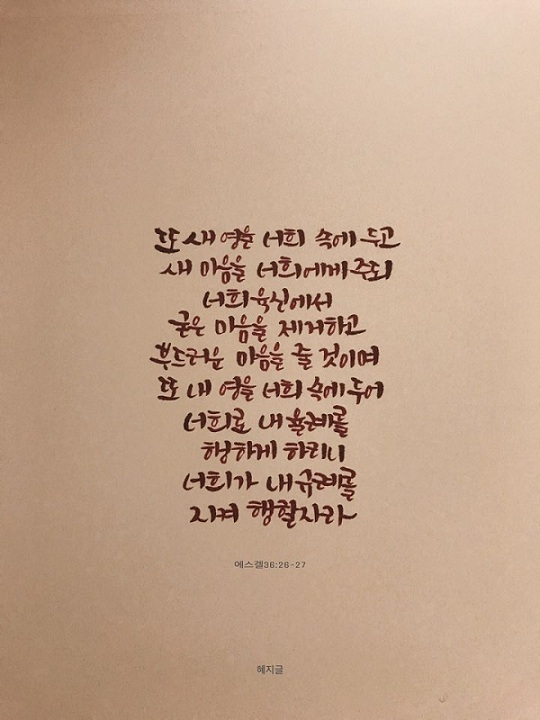 또 새 영을 너희 속에 두고
새 마음을 너희에게 주되
너희 육신에서
굳은 마음을 제거하고
부드러운 마음을 줄 것이며
또 내 영을 너희 속에 두어
너희로 내 율례를
행하게 하리니
너희가 내 규례를
지켜 행할지라
에스겔36:26-27
혜지글